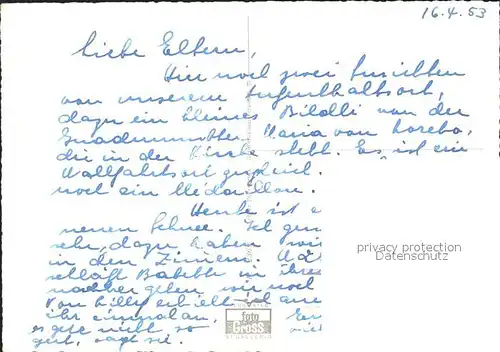 16.4.53
Liebe Eltern,
Hier noch zwei Ansichten
von unserem Aufenthaltsort,
dazu ein kleines Bildli von der
Gnadenmutter Maria von Loreto,
die in der Kirche steht. Es ist ein
Wallfahrtsort zugleich.
noch ein Médaillon.
Heute ist e
neuen Schnee. Ich
sehr, dazu haben wir
in den Zimmern.
schläft Babette in ihrem
nachher gehen wir noch
Von Lilly erhielt ich
ihr einmal an.
es gehe nicht so
gut, sagt sie.
privacy protection
Datenschutz
foto
Gross